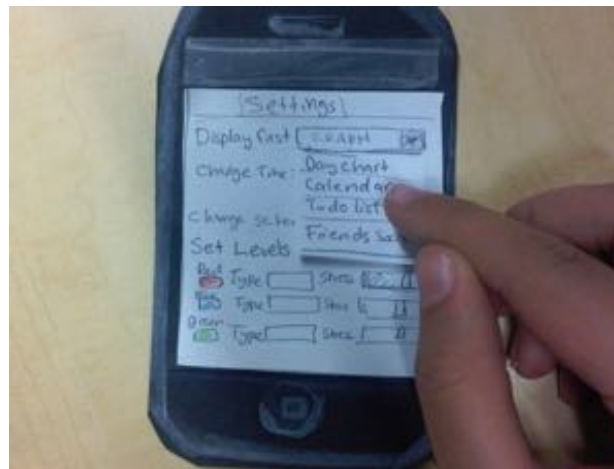 Settings
Display first GRAPH
Change Time: Day chart
Calendar
To do list
Change
Friends
Set Levels
Red Type Stress
Blue Type Stress
green Type Stress